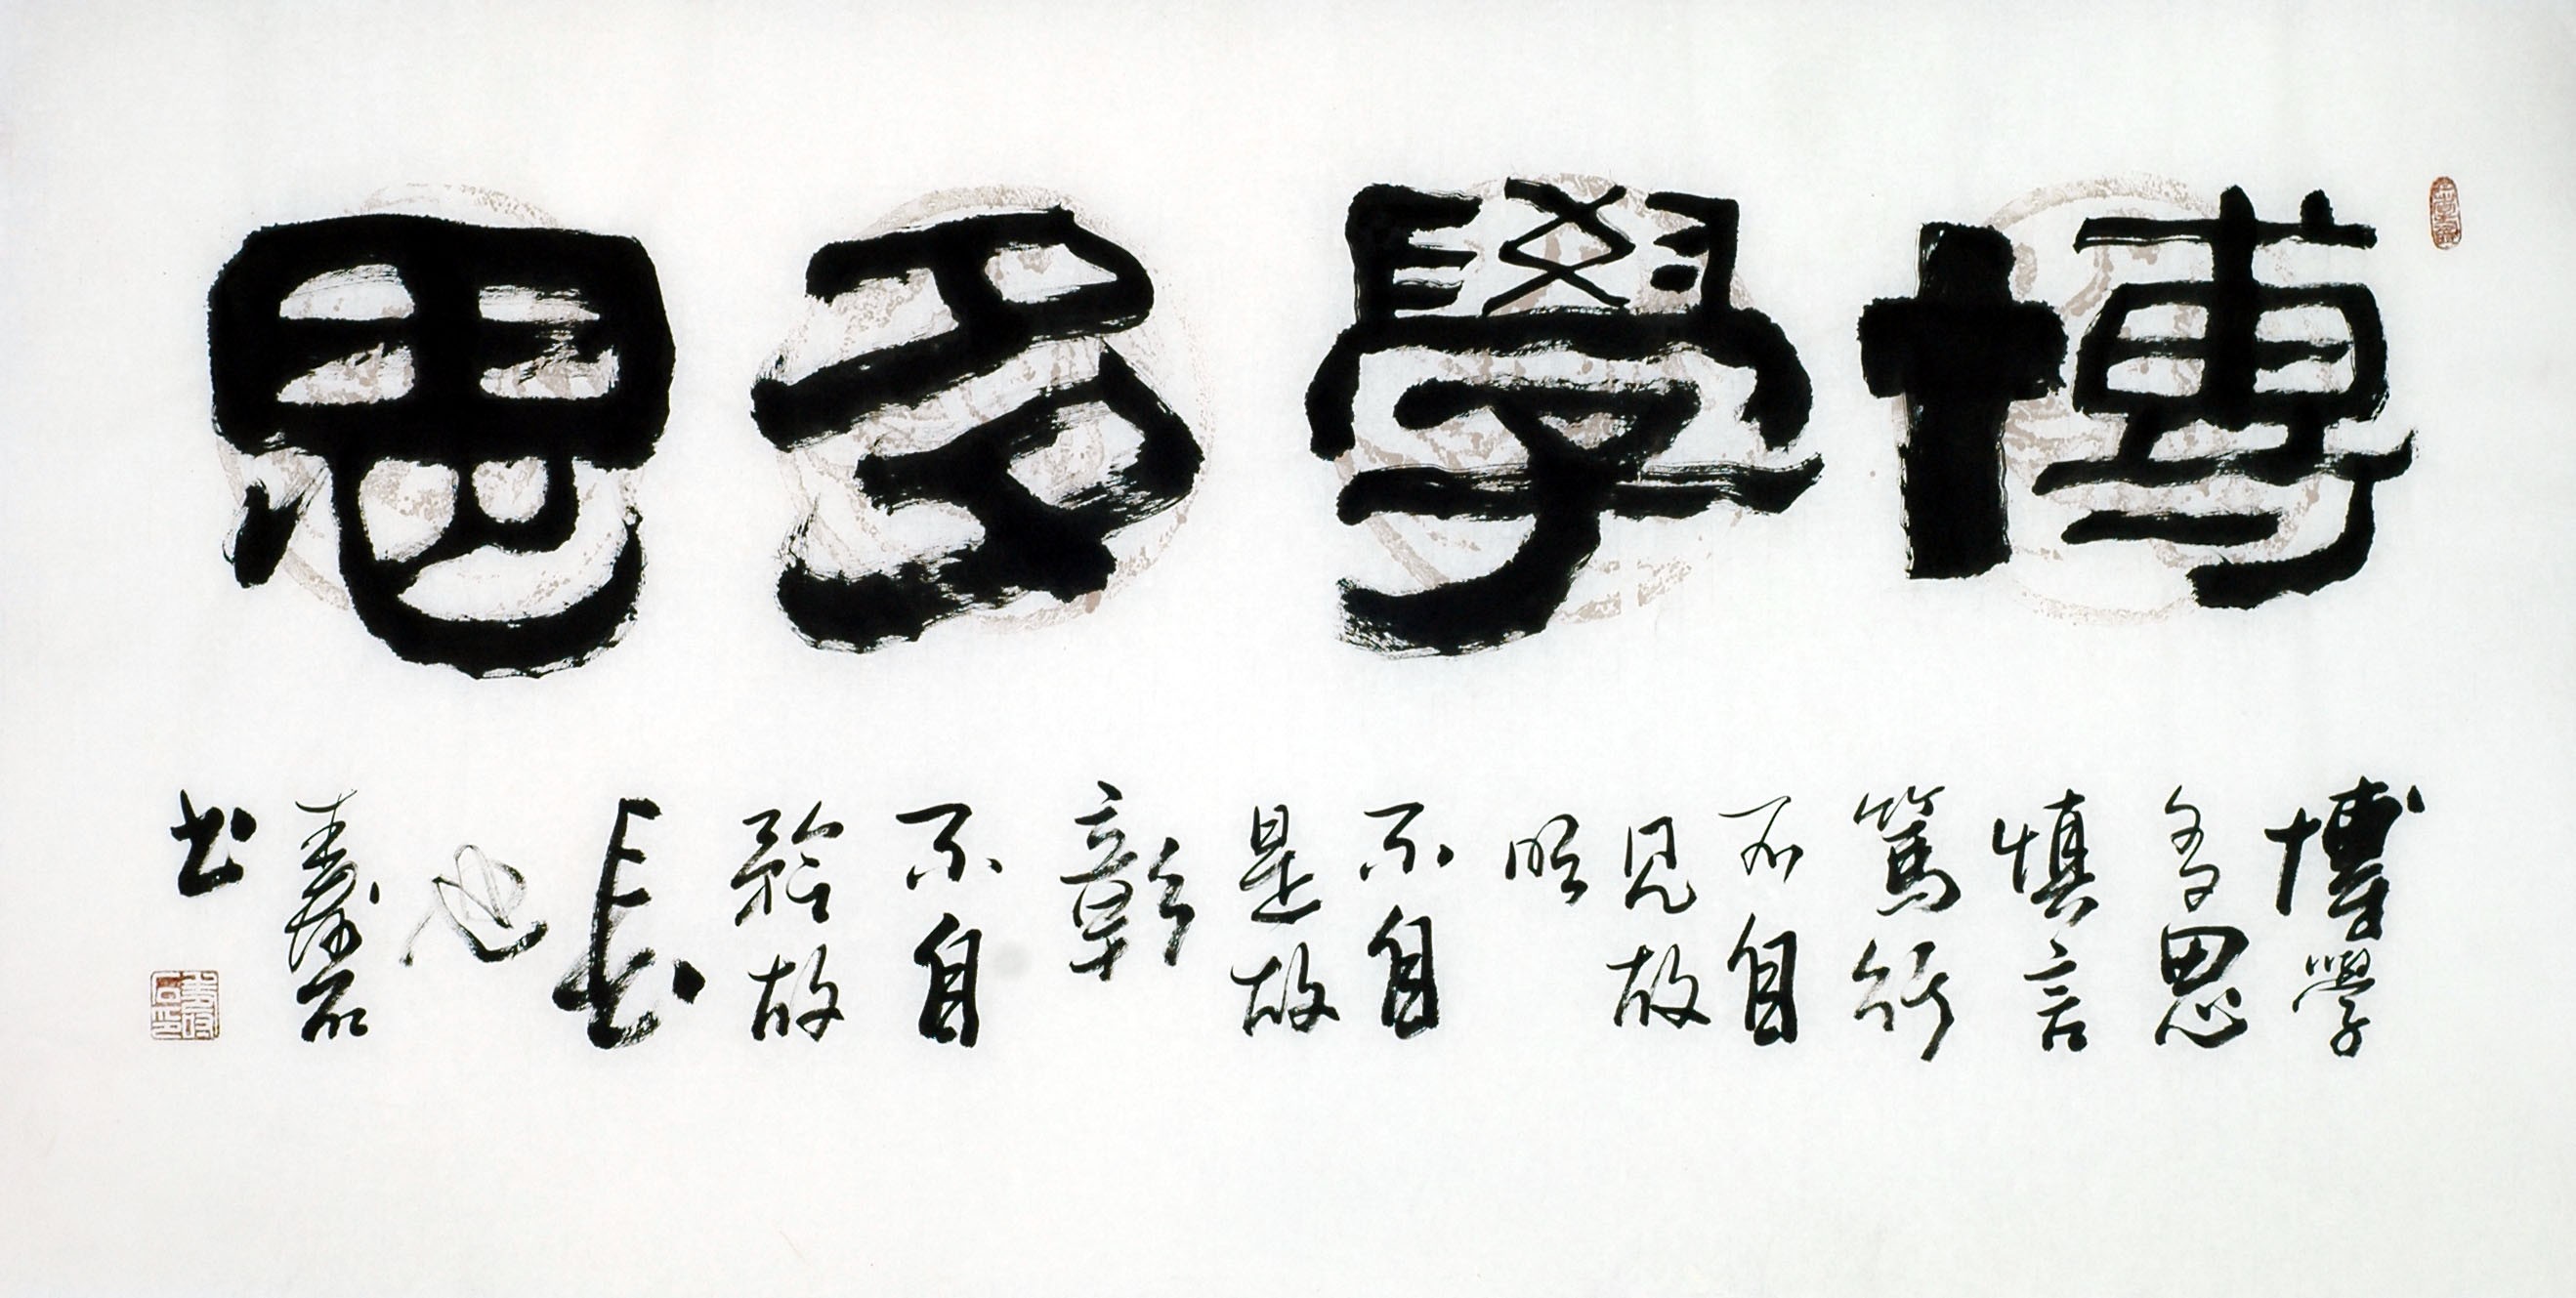 博學多思
博學
多思
慎言
篤行
不自
見故
明
不自
是故
彰
不自
矜故
長
也
石
书